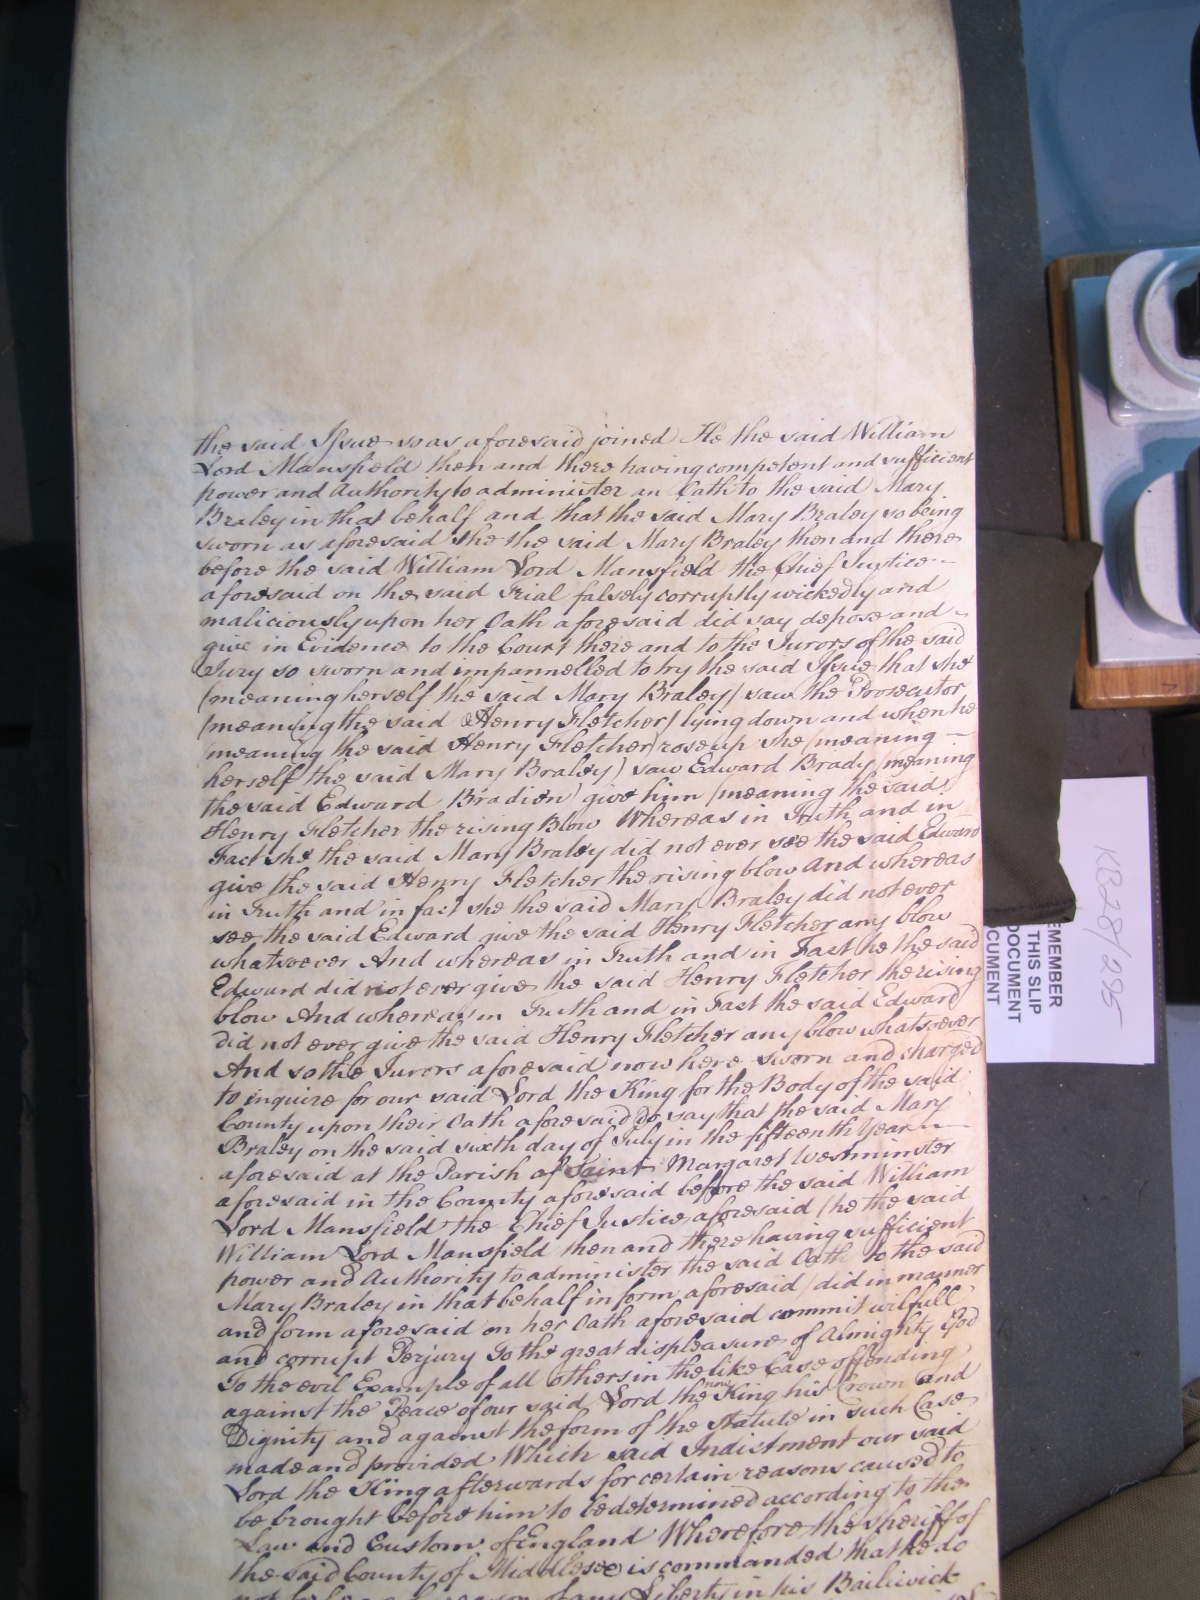 the said Issue so as aforesaid joined He the said William
Lord Mansfield then and there having competent and sufficient
power and Authority to administer an Oath to the said Mary
Braley in that behalf and that the said Mary Braley so being
sworn as aforesaid she the said Mary Braley then and there
before the said William Lord Mansfield the Chief Justice
aforesaid on the said Trial falsely corruptly wickedly and
maliciously upon her Oath aforesaid did say depose and
give in Evidence to the Court there and to the Jurors of the said
Jury so sworn and impannelled to try the said Issue that she
(meaning herself the said Mary Braley) saw the Prosecutor
(meaning the said Henry Fletcher) lying down and when he
(meaning the said Henry Fletcher) rose up she (meaning
herself the said Mary Braley) saw Edward Brady (meaning
the said Edward Bradien) give him (meaning the said
Henry Fletcher the rising Blow Whereas in Truth and in
Fact she the said Mary Braley did not ever see the said Edward
give the said Henry Fletcher the rising blow And whereas
in Truth and in fact she the said Mary Braley did not ever
see the said Edward give the said Henry Fletcher any blow
whatsoever And whereas in Truth and in Fact he the said
Edward did not ever give the said Henry Fletcher the rising
blow And whereas in Truth and in Fact the said Edward
did not ever give the said Henry Fletcher any blow whatsoever
And so the Jurors aforesaid now here sworn and charged
to inquire for our said Lord the King for the Body of the said
County upon their Oath aforesaid do say that the said Mary
Braley on the said sixth day of July in the fifteenth Year
aforesaid at the Parish of Saint Margaret Westminster
aforesaid in the County aforesaid before the said William
Lord Mansfield the Chief Justice aforesaid (he the said
William Lord Mansfield then and there having sufficient
power and Authority to administer the said Oath to the said
Mary Braley in that behalf in form aforesaid) did in manner
and form aforesaid on her Oath aforesaid commit wilfull
and corrupt Perjury To the great displeasure of Almighty God
To the evil Example of all others in the like Case offending
against the Peace of our said Lord the now King his Crown and
Dignity and against the form of the Statute in such Case
made and provided Which said Indictment our said
Lord the King afterwards for certain reasons caused to
be brought before him to be determined according to the
Law and Custom of England Wherefore the Sheriff of
the said County of Middlesex is commanded that he do
not of any Liberty in his Bailiwick
KB28/295
EMEMBER
THIS SLIP
DOCUMENT
CUMENT